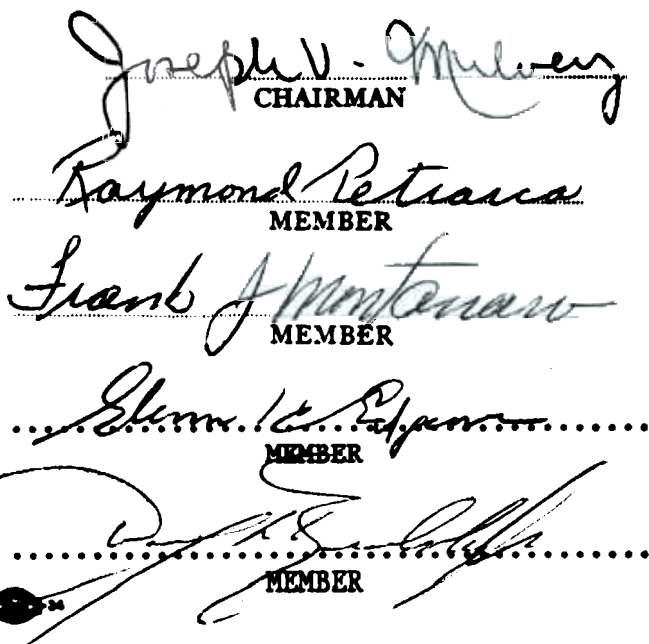 Joseph V. Mulvey
CHAIRMAN
Raymond Petrarca
MEMBER
Frank J Montanaro
MEMBER
Glenn
MEMBER
MEMBER